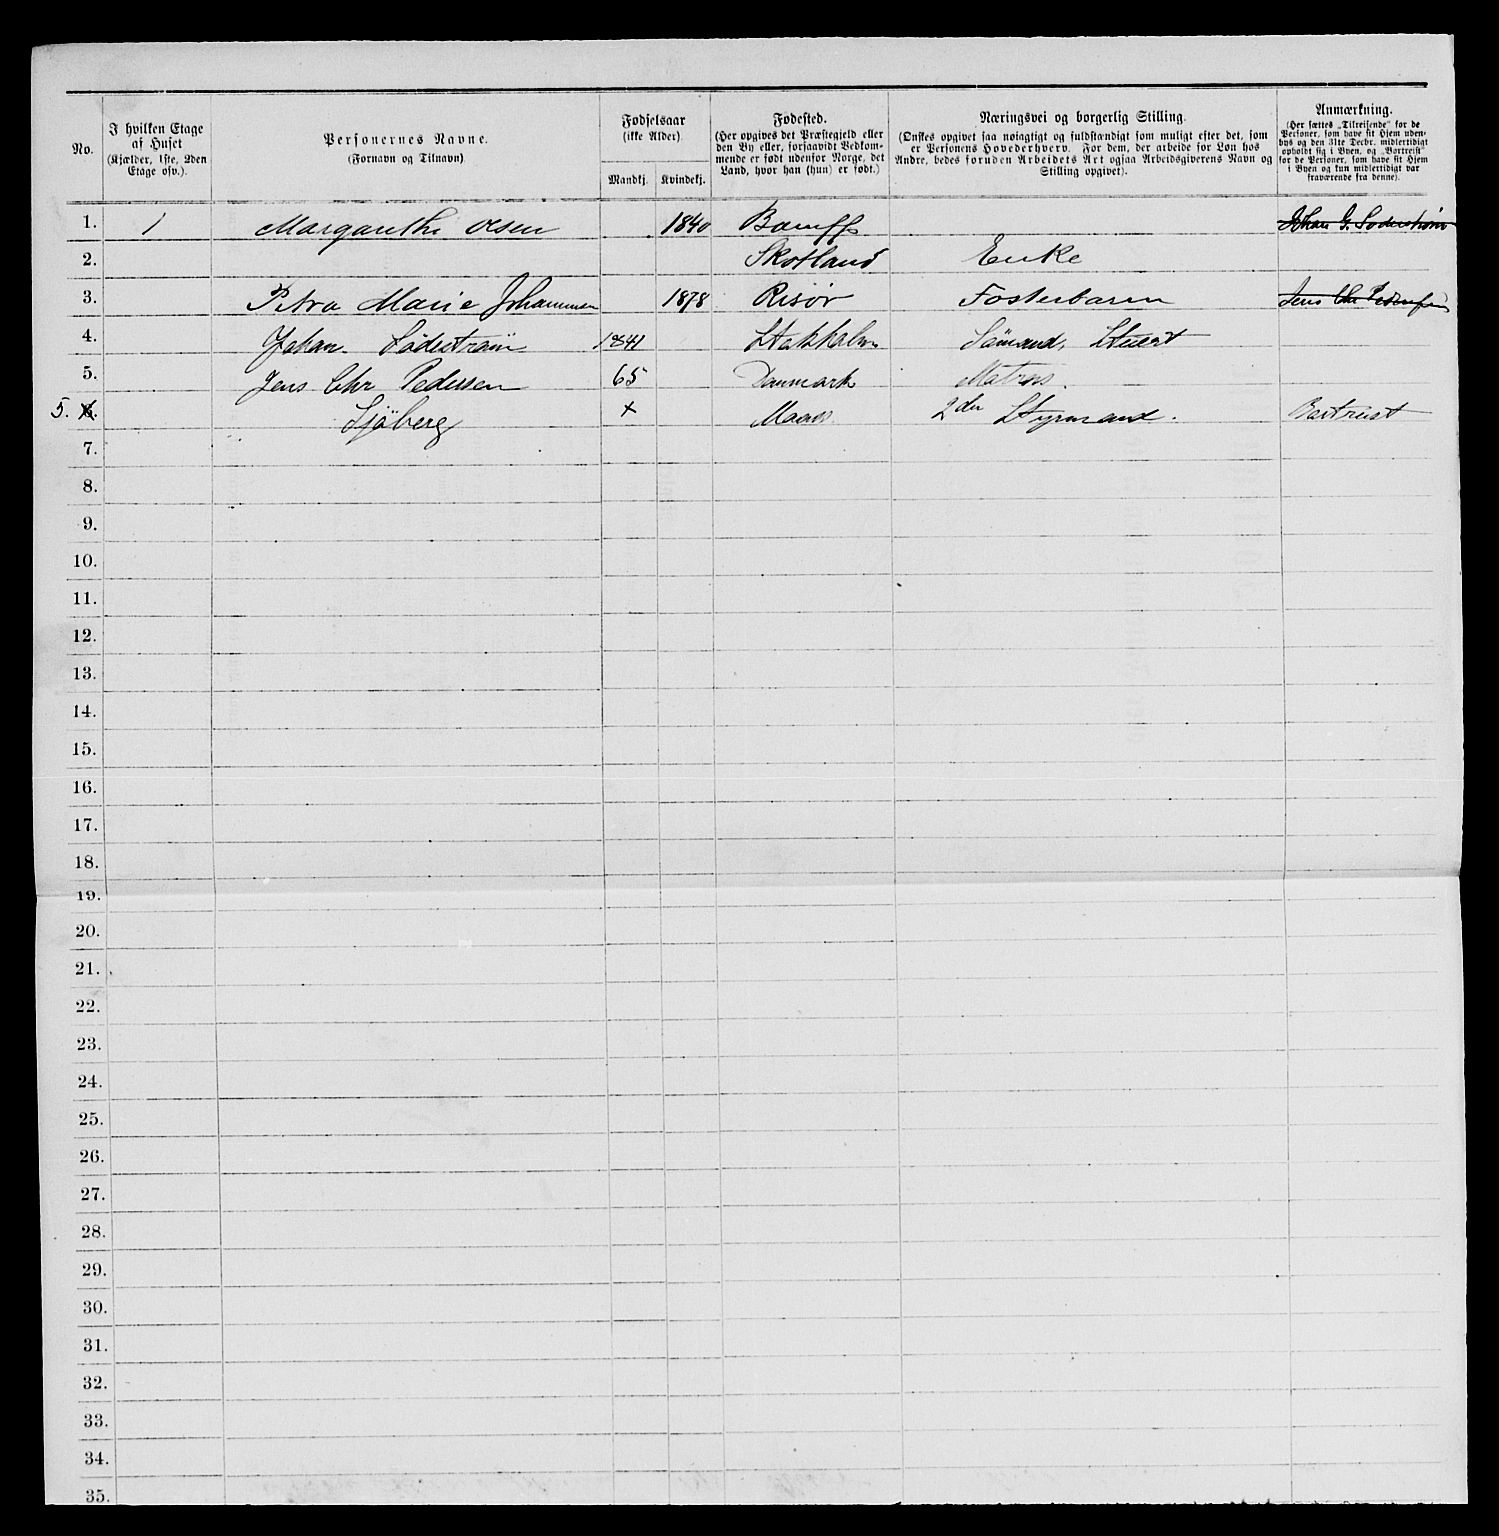 No.
I hvilken Etage af Huset (Kjælder, 1ste, 2den Etage osv.).
Personernes Navne. (Fornavn og Tilnavn)
Fødselsaar (ikke Alder).
Mandkj. Kvindekj.
Fødested. (Her opgives det Præstegjeld eller den By eller, forsaavidt Vedkommende er født udenfor Norge, det Land, hvor han (hun) er født.)
Næringsvei og borgerlig Stilling. (Ønskes opgivet saa nøiagtigt og fuldstændigt som muligt efter det, som er Personens Hovederhverv. For dem, der arbeide for Løn hos Andre, bedes foruden Arbeidets Art ogsaa Arbeidsgiverens Navn og Stilling opgivet).
Anmærkning. (Her sættes „Tilreisende" for de Personer, som have sit Hjem udenbys og den 31te Decbr. midlertidigt opholdt sig i Byen, og „Bortreist" for de Personer, som have sit Hjem i Byen og kun midlertidigt var fraværende fra denne).
1. 1 Margarethe Olsen 1840 Bamff Johan G. Soderstrøm
2. Skotland Enke
3. Petra Marie Johannesen 1878 Risør Fosterbarn Jens Chr Pedersen
4. Johan Söderström 1841 Stokholm Sömand, Stuert
5. Jens Chr Pedersen 65 Danmark Matros.
5. 6. Sjöberg × 2den Styrmand. Bortreist
7.
8.
9.
10.
11.
12.
13.
14.
15.
16.
17.
18.
19.
20.
21.
22.
23.
24.
25.
26.
27.
28.
29.
30.
31.
32.
33.
34.
35.